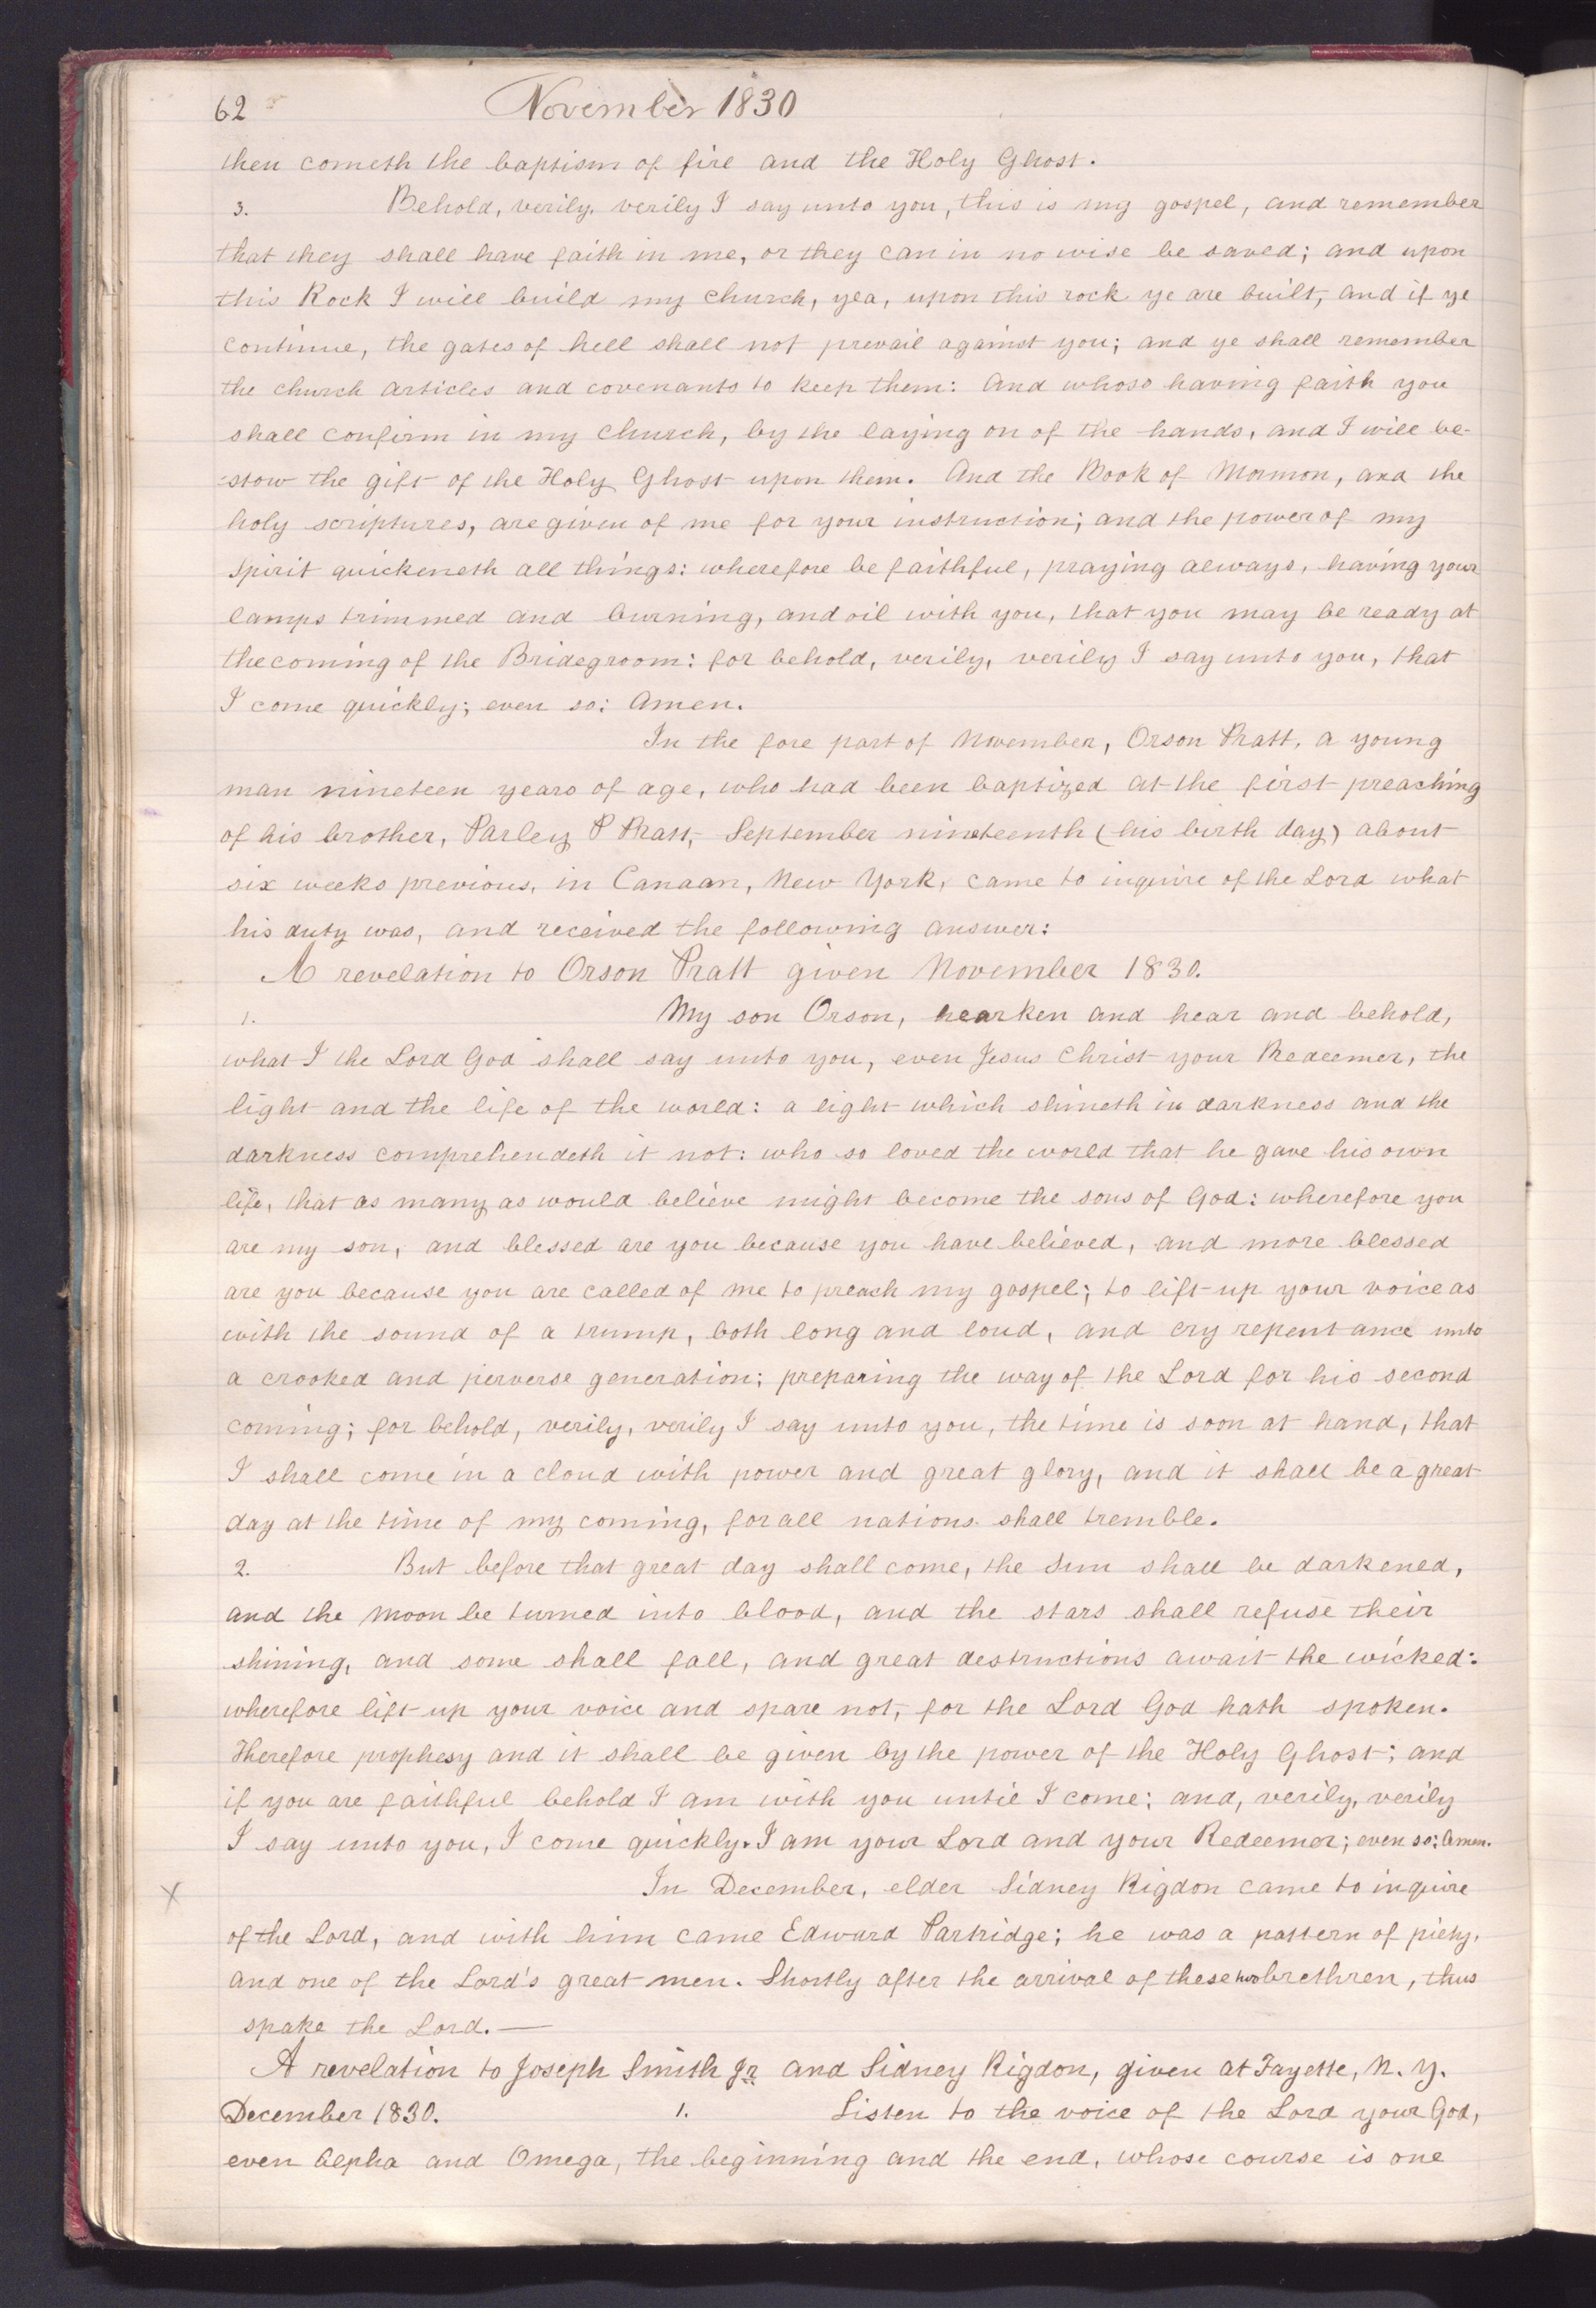 62 November 1830
then cometh the baptism of fire and the Holy Ghost.
3. Behold, verily, verily I say unto you, this is my gospel, and remember
that they shall have faith in me, or they can in no wise be saved; and upon
this Rock I will build my church, yea, upon this rock ye are built, and if ye
continue, the gates of hell shall not prevail against you; and ye shall remember
the church articles and covenants to keep them: And whoso having faith you
shall confirm in my church, by the laying on of the hands, and I will be-
-stow the gift of the Holy Ghost upon them. And the Book of Mormon, and the
holy scriptures, are given of me for your instruction; and the power of my
Spirit quickeneth all things: wherefore be faithful, praying always, having your
lamps trimmed and burning, and oil with you, that you may be ready at
the coming of the Bridegroom: for behold, verily, verily I say unto you, that
I come quickly; even so: Amen.
In the fore part of November, Orson Pratt, a young
man nineteen years of age, who had been baptized at the first preaching
of his brother, Parley P Pratt, September nineteenth (his birth day) about
six weeks previous, in Canaan, New York, came to inquire of the Lord what
his duty was, and received the following answer:
A revelation to Orson Pratt given November 1830.
1. My son Orson, hearken and hear and behold,
what I the Lord God shall say unto you, even Jesus Christ your Redeemer, the
light and the life of the world: a light which shineth in darkness and the
darkness comprehendeth it not: who so loved the world that he gave his own
life, that as many as would believe might become the sons of God: wherefore you
are my son, and blessed are you because you have believed, and more blessed
are you because you are called of me to preach my gospel; to lift up your voice as
with the sound of a trump, both long and loud, and cry repentance unto
a crooked and perverse generation; preparing the way of the Lord for his second
coming; for behold, verily, verily I say unto you, the time is soon at hand, that
I shall come in a cloud with power and great glory, and it shall be a great
day at the time of my coming, for all nations shall tremble.
2. But before that great day shall come, the Sun shall be darkened,
and the moon be turned into blood, and the stars shall refuse their
shining, and some shall fall, and great destructions await the wicked:
wherefore lift up your voice and spare not, for the Lord God hath spoken.
Therefore prophesy and it shall be given by the power of the Holy Ghost; and
if you are faithful behold I am with you until I come: and, verily, verily
I say unto you, I come quickly. I am your Lord and your Redeemer; even so: Amen.
X In December, elder Sidney Rigdon came to inquire
of the Lord, and with him came Edward Partridge; he was a pattern of piety,
and one of the Lord's great men. Shortly after the arrival of these two brethren, thus
spake the Lord.—
A revelation to Joseph Smith Jr and Sidney Rigdon, given at Fayette, N. Y.
December 1830. 1. Listen to the voice of the Lord your God,
even Alpha and Omega, the beginning and the end, whose course is one